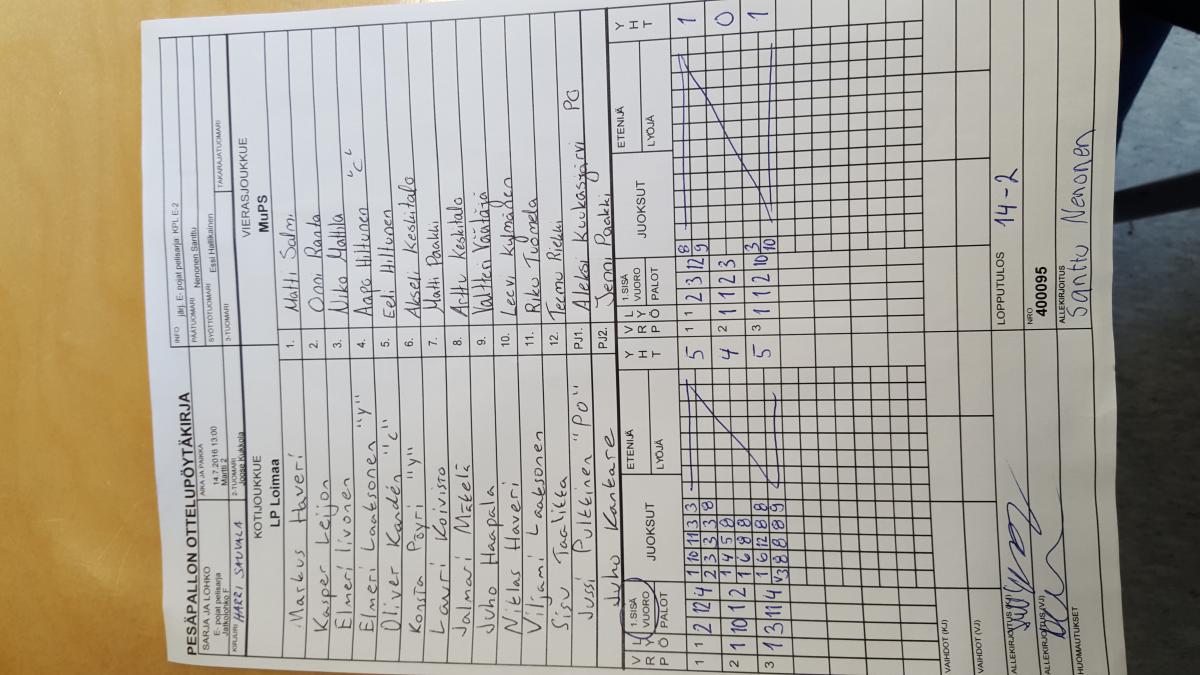 PESÄPALLON OTTELUPÖYTÄKIRJA
SARJA JA LOHKO
E- pojat pelisarja
Jatkolohko F
AIKA JA PAIKKA
14.7.2016 13:00
Martti 2
INFO järj. E- pojat pelisarja: KPL E-2
PÄÄTUOMARI Nenonen Santtu
SYÖTTÖTUOMARI Essi Hallikainen
KIRJURI HARRI SAUVALA
2-TUOMARI
Joose Kukkola
3-TUOMARI
TAKARAJATUOMARI
KOTIJOUKKUE
LP Loimaa
VIERASJOUKKUE
MuPS
Markus Haveri 1. Matti Salmi
Kasper Leijon 2. Onni Ranta
Elmeri Iivonen 3. Niko Mattila
Elmeri Laaksonen "y" 4. Aapo Hiltunen "c"
Oliver Kardén "c" 5. Eeli Hiltunen
Konsta Pöyri "y" 6. Akseli Keskitalo
Lauri Koivisto 7. Matti Paakki
Jalmari Mäkelä 8. Arttu Keskitalo
Juho Haapala 9. Valtteri Väätäjä
Niklas Haveri 10. Leevi Kylmänen
Viljami Laaksonen 11. Riku Tuomela
Sisu Taalikka 12. Teemu Riekki
Jussi Pulkkinen "PO" PJ1. Aleksi Kuukasjärvi PO
Juho Kankare PJ2. Jenni Paakki
V R P L Y Ö 1.SISÄ VUORO PALOT JUOKSUT ETENIJÄ LYÖJÄ Y H T V R P L Y Ö 1.SISÄ VUORO PALOT JUOKSUT ETENIJÄ LYÖJÄ Y H T
1 1 2 12 4 1 10 11 3 3 5 1 1 2 3 12 8 1
2 3 3 3 8 9
2 1 10 1 2 1 4 5 8 4 2 1 1 2 3 0
1 6 8 8
3 1 3 11 4 1 6 12 8 8 5 3 1 1 2 10 3 1
3 8 8 8 9 10
VAIHDOT (KJ)
VAIHDOT (VJ)
LOPPUTULOS 14-2
ALLEKIRJOITUS (KJ)
NRO
400095
ALLEKIRJOITUS (VJ)
ALLEKIRJOITUS
Santtu Nenonen
HUOMAUTUKSET